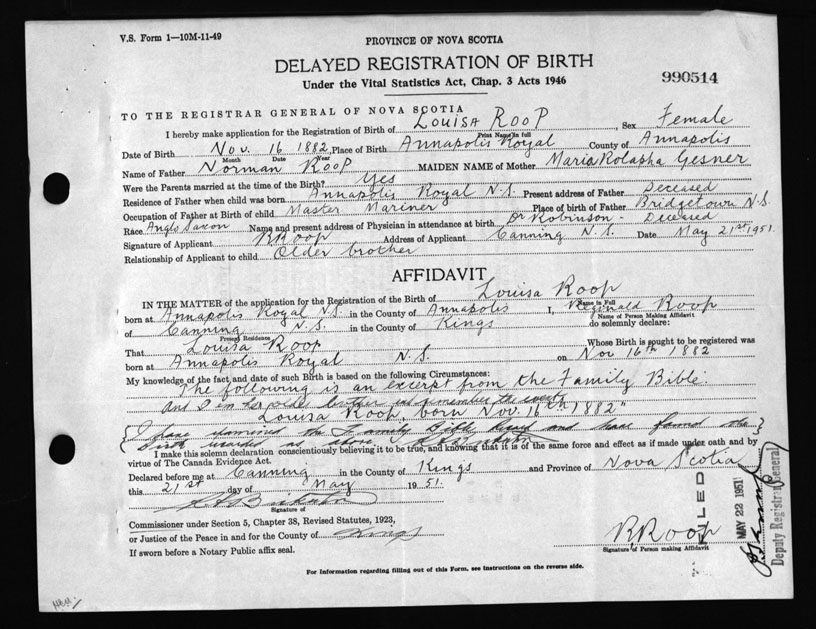 V.S. Form 1—10M-11-49
PROVINCE OF NOVA SCOTIA
DELAYED REGISTRATION OF BIRTH
Under the Vital Statistics Act, Chap. 3 Acts 1946
990514
TO THE REGISTRAR GENERAL OF NOVA SCOTIA
I hereby make application for the Registration of Birth of Louisa Roop Sex Female
Print Name in full
Date of Birth Nov. 16 1882, Place of Birth Annapolis Royal County of Annapolis
Month Date Year
Name of Father Norman Roop MAIDEN NAME of Mother Maria Gesner
Were the Parents married at the time of the Birth? Yes
Residence of Father when child was born Annapolis Royal N.S. Present address of Father Deceased
Occupation of Father at Birth of child Master Mariner Place of birth of Father Bridgetown N.S.
Race Anglo Saxon Name and present address of Physician in attendance at birth Dr Robinson - Deceased
Signature of Applicant R Roop Address of Applicant Canning N.S. Date May 21st 1951.
Relationship of Applicant to child Older brother
AFFIDAVIT
IN THE MATTER of the application for the Registration of the Birth of Louisa Roop
Name in Full
born at Annapolis Royal N.S. in the County of Annapolis I, Reginald Roop
Name of Person Making Affidavit
of Canning N.S. in the County of Kings do solemnly declare:
Present Residence
That Louisa Roop Whose Birth is sought to be registered was
born at Annapolis Royal N.S. on Nov 16th 1882
My knowledge of the fact, and date of such Birth is based on the following Circumstances:
The following is an excerpt from the Family Bible:
And I am her older brother and remember the event
Louisa Roop, born Nov. 16th 1882"
I have examined the Family Bible and have found the
birth recorded as above.
I make this solemn declaration conscientiously believing it to be true, and knowing that it is of the same force and effect as if made under oath and by
virtue of The Canada Evidence Act.
Declared before me at Canning in the County of Kings and Province of Nova Scotia
this 21st day of May 1951.
Signature of
Commissioner under Section 5, Chapter 38, Revised Statutes, 1923,
or Justice of the Peace in and for the County of Kings
If sworn before a Notary Public affix seal.
R Roop
Signature of Person making Affidavit
FILED
MAY 22 1951
Deputy Registrar General
For Information regarding filling out of this Form, see instructions on the reverse side.